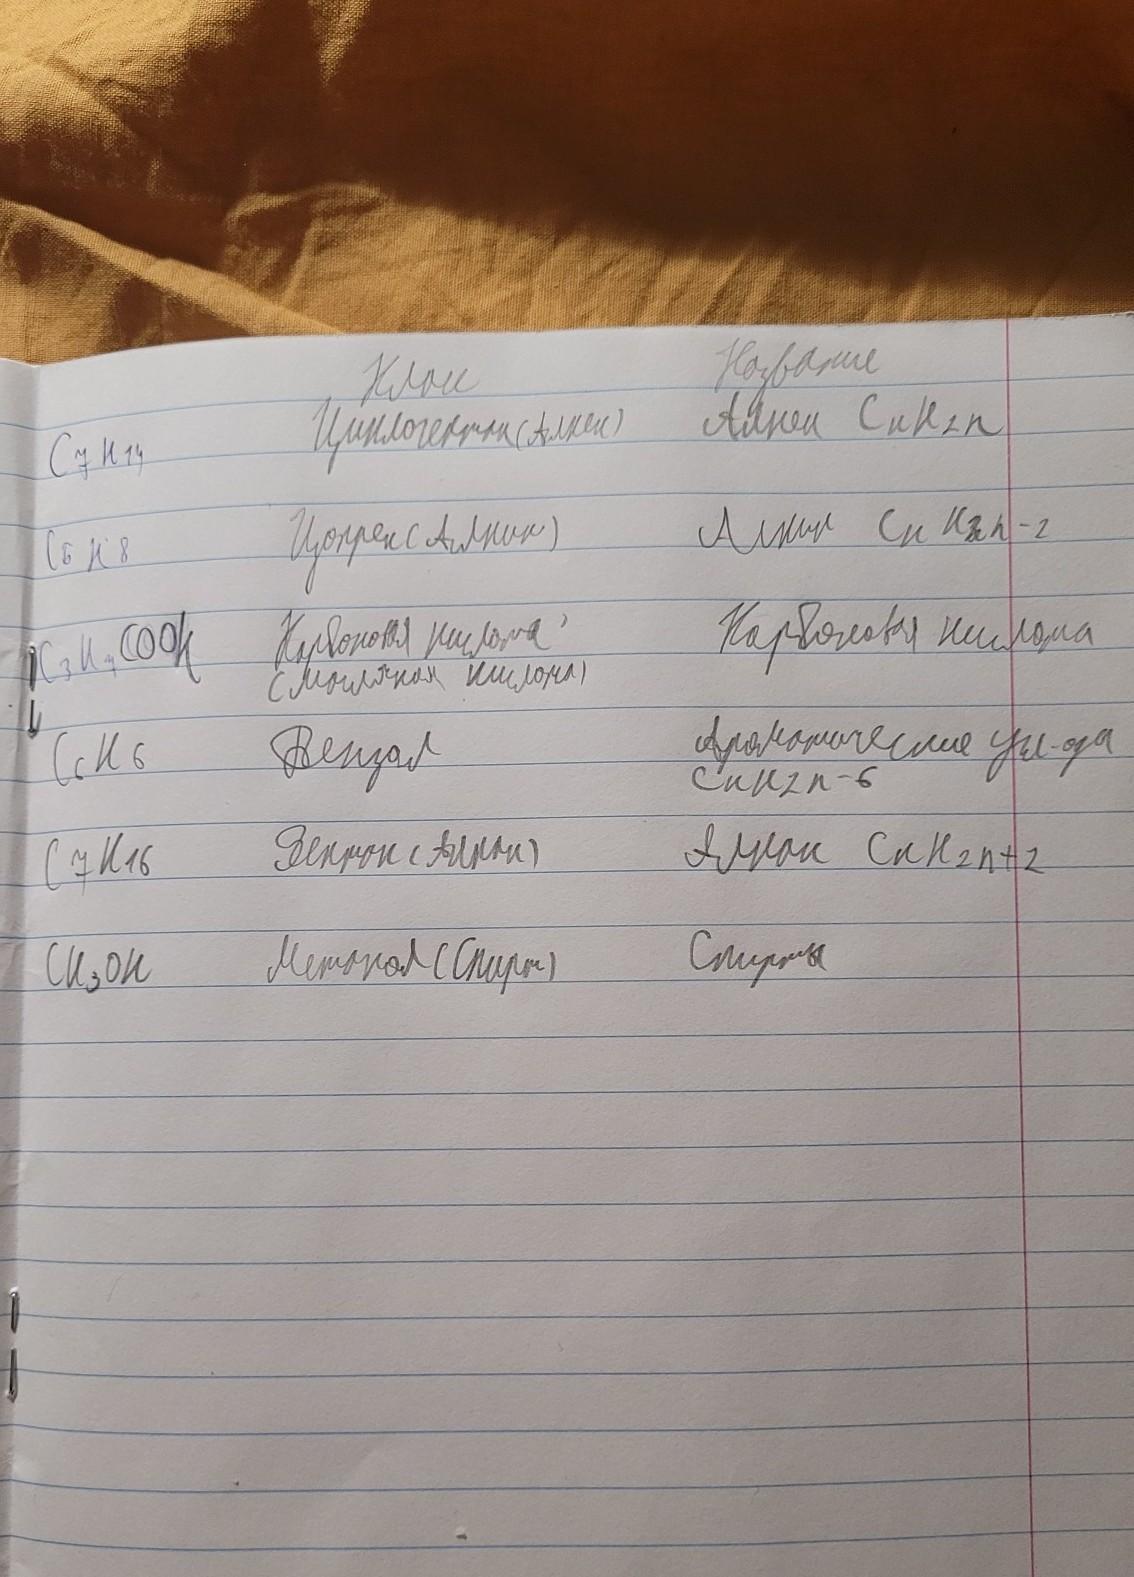 Клас Название
C7H14 Циклогептан (Алкен) Алкен CnH2n
C5H8 Изопрен (Алкин) Алкин CnH2n-2
C3H7COOH Карбоновая кислота Карбоновая кислота
(Масляная кислота)
C6H6 Бензол Ароматические угл-оды
CnH2n-6
C7H16 Гептан (Алкан) Алкан CnH2n+2
CH3OH Метанол (Спирт) Спирты